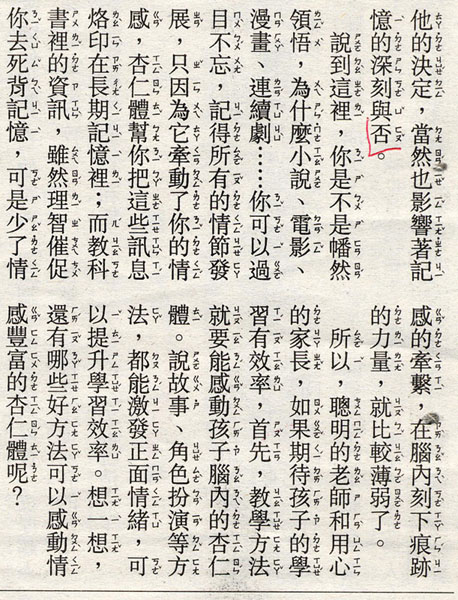 他的決定，當然也影響著記
憶的深刻與否。
說到這裡，你是不是幡然
領悟，為什麼小說、電影、
漫畫、連續劇……你可以過
目不忘，記得所有的情節發
展，只因為它牽動了你的情
感，杏仁體幫你把這些訊息
烙印在長期記憶裡；而教科
書裡的資訊，雖然理智催促
你去死背記憶，可是少了情
感的牽繫，在腦內刻下痕跡
的力量，就比較薄弱了。
所以，聰明的老師和用心
的家長，如果期待孩子的學
習有效率，首先，教學方法
就要能感動孩子腦內的杏仁
體。說故事、角色扮演等方
法，都能激發正面情緒，可
以提升學習效率。想一想，
還有哪些好方法可以感動情
感豐富的杏仁體呢？